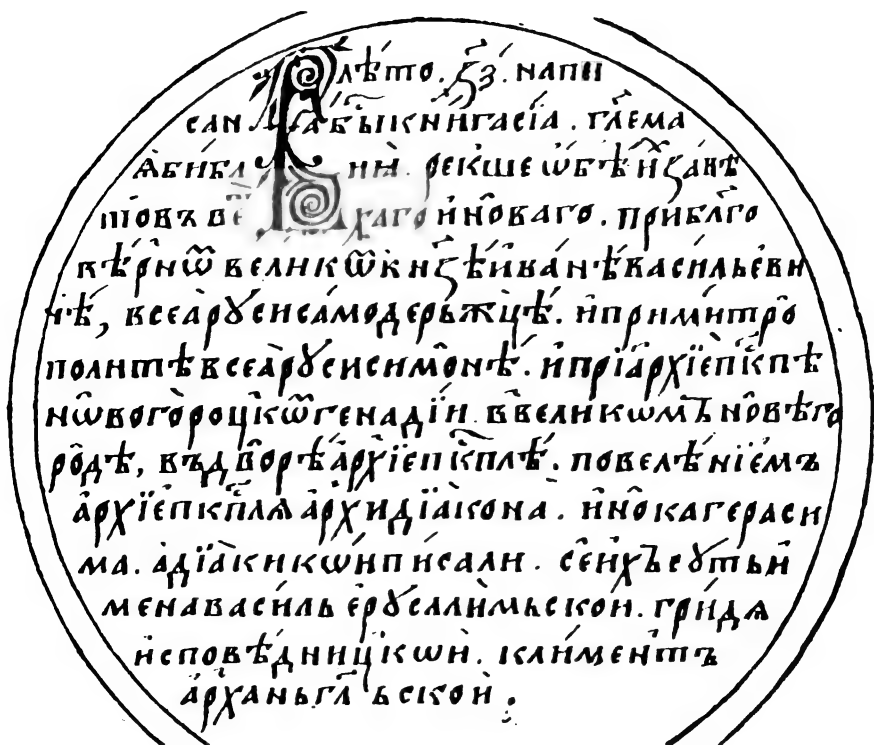 лѣто. ҂зз҃. напи
сана бы́ кни́га сїа̀. гл҃ема
ѧ би́блиꙗ. ре́кше ѻ҆бѣи́х завѣ
товъ ве́тхаго и҆ но́ваго. при бл҃го
вѣ́рно̑м вели́ко̑м кн҃зѣ и҆ва́нѣ васи́льеви
чѣ, всеѧ̀ рꙋсѝ самоде́рьжцѣ. и҆ при ми́тро
поли́тѣ всеѧ̀ рꙋсѝ си́монѣ. и҆ при а҆рхїепⷭ҇кпѣ
нѡвогоро́цкѡⷨ генадїи. в вели́кѡмъ но́вѣго
ро́дѣ, въ дворѣ̀ а҆рхїепⷭ҇кплѣ. повелѣ́нїемъ
а҆рхїепⷭ҇кплѧ а҆рхидїа́кона. и҆́нока гераси
ма. а дїа́ки кѡи писа́ли. се и҆́хъ сꙋть и҆
мена̀ васи́ль е҆рꙋсали́мьскои. гри́дѧ
и҆сповѣ́дницкѡи. кли́ментъ
а҆рха́ньгльскои.